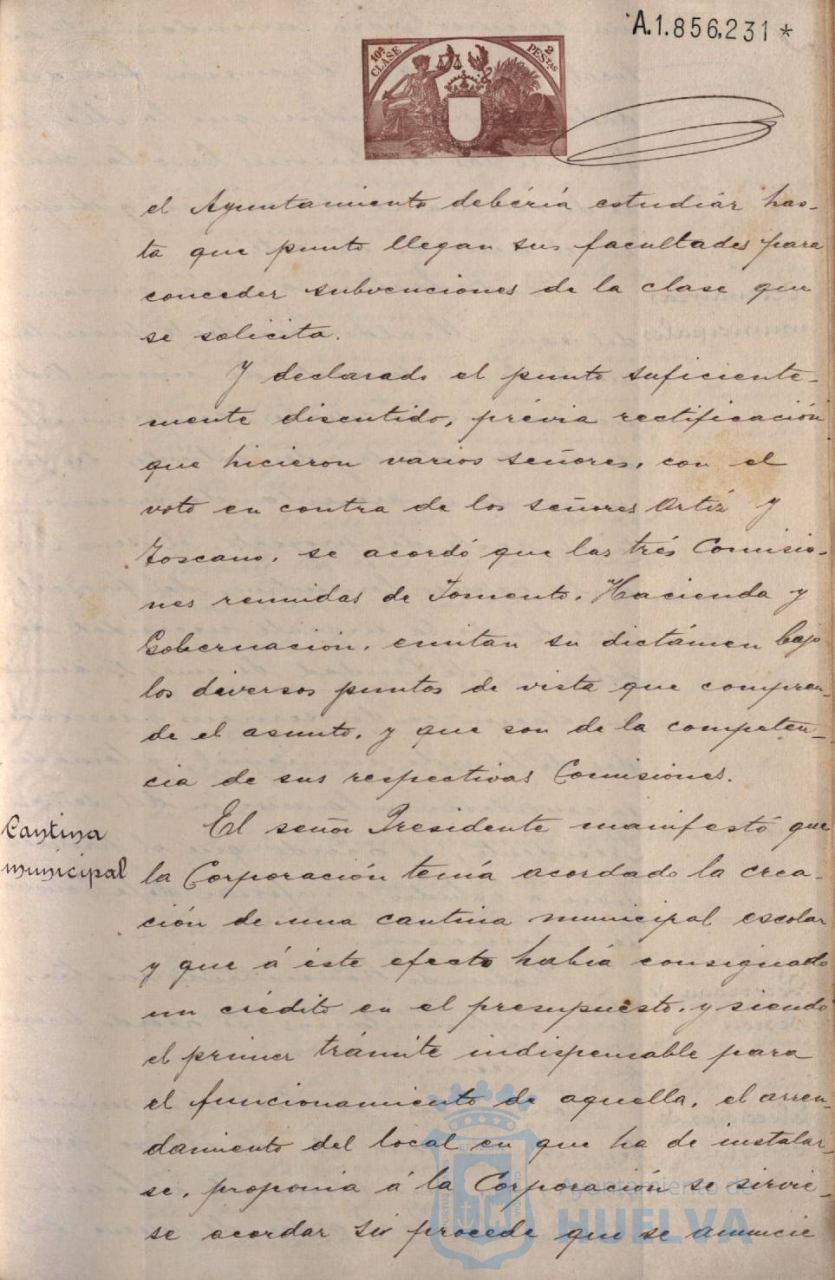 A.1.856,231 *
10ª CLASE
2 PESTAS
el Ayuntamiento debería estudiár has-
ta que punto llegan sus facultades para
conceder subvenciones de la clase que
se solicita.
Y declarado el punto suficiente-
mente discutido, prévia rectificación
que hicieron varios señores, con el
voto en contra de los señores Ortíz y
Toscano, se acordó que las trés Comisio-
nes reunidas de Fomento, Hacienda y
Gobernación, emitan su dictámen bajo
los diversos puntos de vista que compren-
de el asunto, y que son de la competen-
cia de sus respectivas Comisiones.
Cantina
municipal
El señor Presidente manifestó que
la Corporación tenía acordado la crea-
ción de una cantina municipal escolar
y que á éste efecto había consignado
un crédito en el presupuesto, y siendo
el primer trámite indispensable para
el funcionamiento de aquella, el arren-
damiento del local en que ha de instalar-
se, proponia á la Corporación se sirvie-
se acordar si procede que se anuncie
Ayuntamiento de
HUELVA